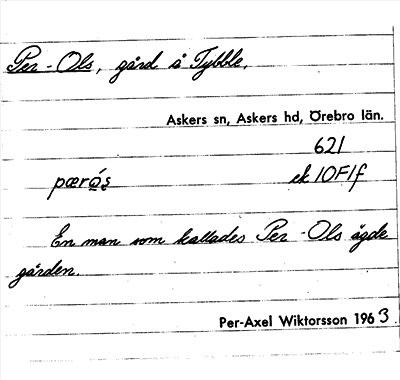 Per-Ols, gård å Tybble.
Askers sn, Askers hd, Örebro län.
621
pærǫ́ș ek 10F1f
En man som kallades Per-Ols ägde
gården.
Per-Axel Wiktorsson 1963.